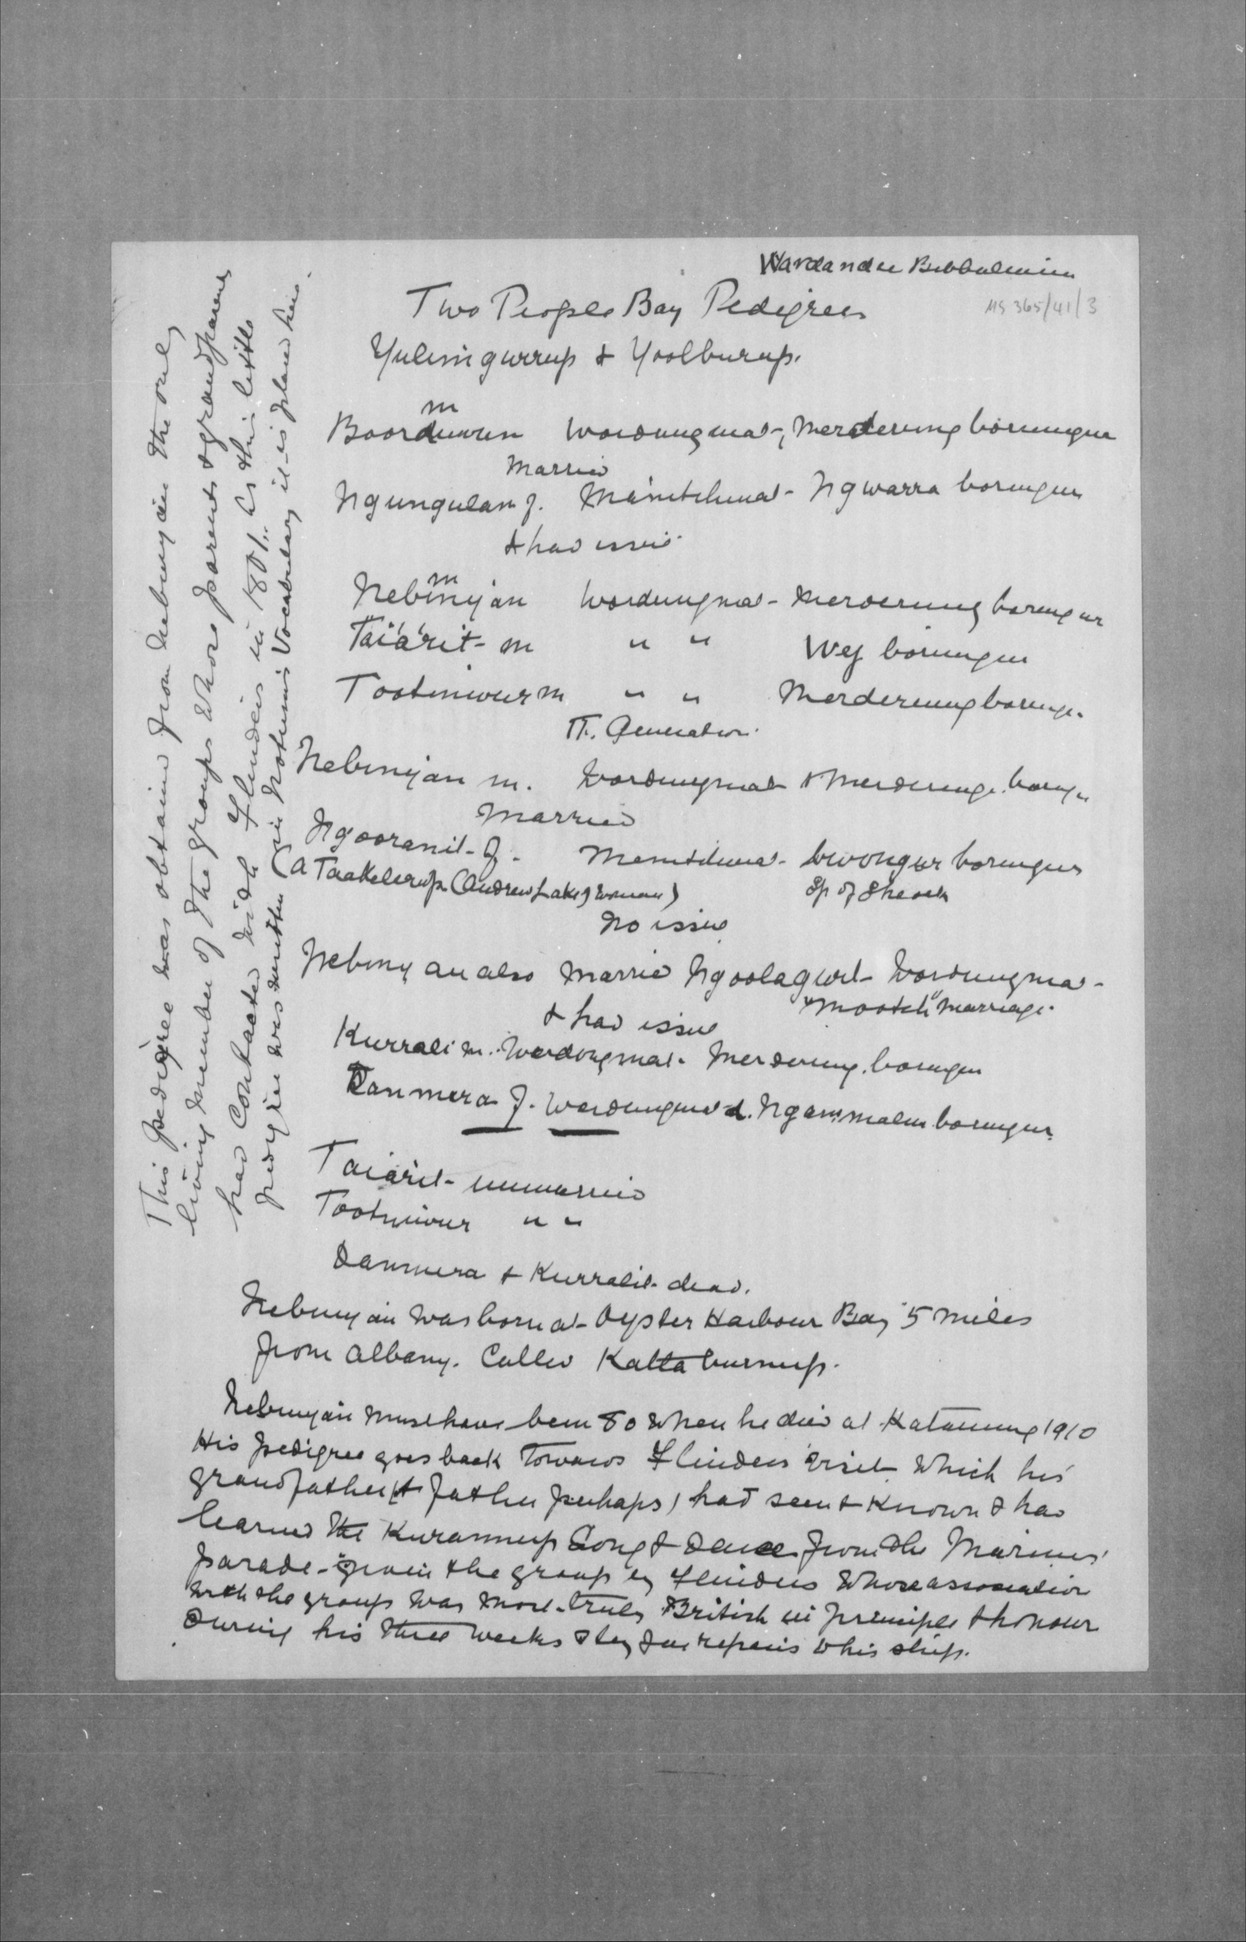 Wardandee Bibbulmun
MS 365/41/3
Two People Bay Pedigrees
Yulingurrup & Yoolburup.
m
Boorduwun Wordungmat, Merderung borungur
Married
Ngungulan f. Manitchmat - Ngwarra borungur
& had issue
m
Nebinyan Wordungmat - Merderung borungur
Taiarit - m " " Wej borungur
Tootmiwur m " " Merderung borungur
II. Generation.
Nebinyan m. Wordungmat & Merderung borungur
Married
Ngooranit - f. Manitchmat - bwongur borungur
(a Taakelerup (Andrew Lake) woman) Sp of Sheoak
No issue
Nebinyan also married Ngoolagurt Wordungmat -
"mootch" marriage.
& had issue
Kurralit m. Wordungmat. Merderung borungur
Danmera f. Wordungmat. Ngammalum borungur
Taiarit - unmarried
Tootmiwur " "
Danmera & Kurralit dead.
Nebinyan was born at Oyster Harbour Bay 5 miles
from Albany. Called Katta burnup.
Nebinyan must have been 80 when he died at Katanning 1910
His pedigree goes back towards Flinders visit which his
grandfather (& father perhaps) had seen & known & had
learned the Kurannup Song & dance from the Marines'
parade - given the group by Flinders whose association
with the group was most truly British in principle & honour
during his three weeks stay for repairs to his ship.
This pedigree was obtained from Nebinyan the only
living member of the groups whose parents & grandparents
had contacted with Flinders in 1801. As this little
pedigree was written in Notums Vocabulary it is placed here.